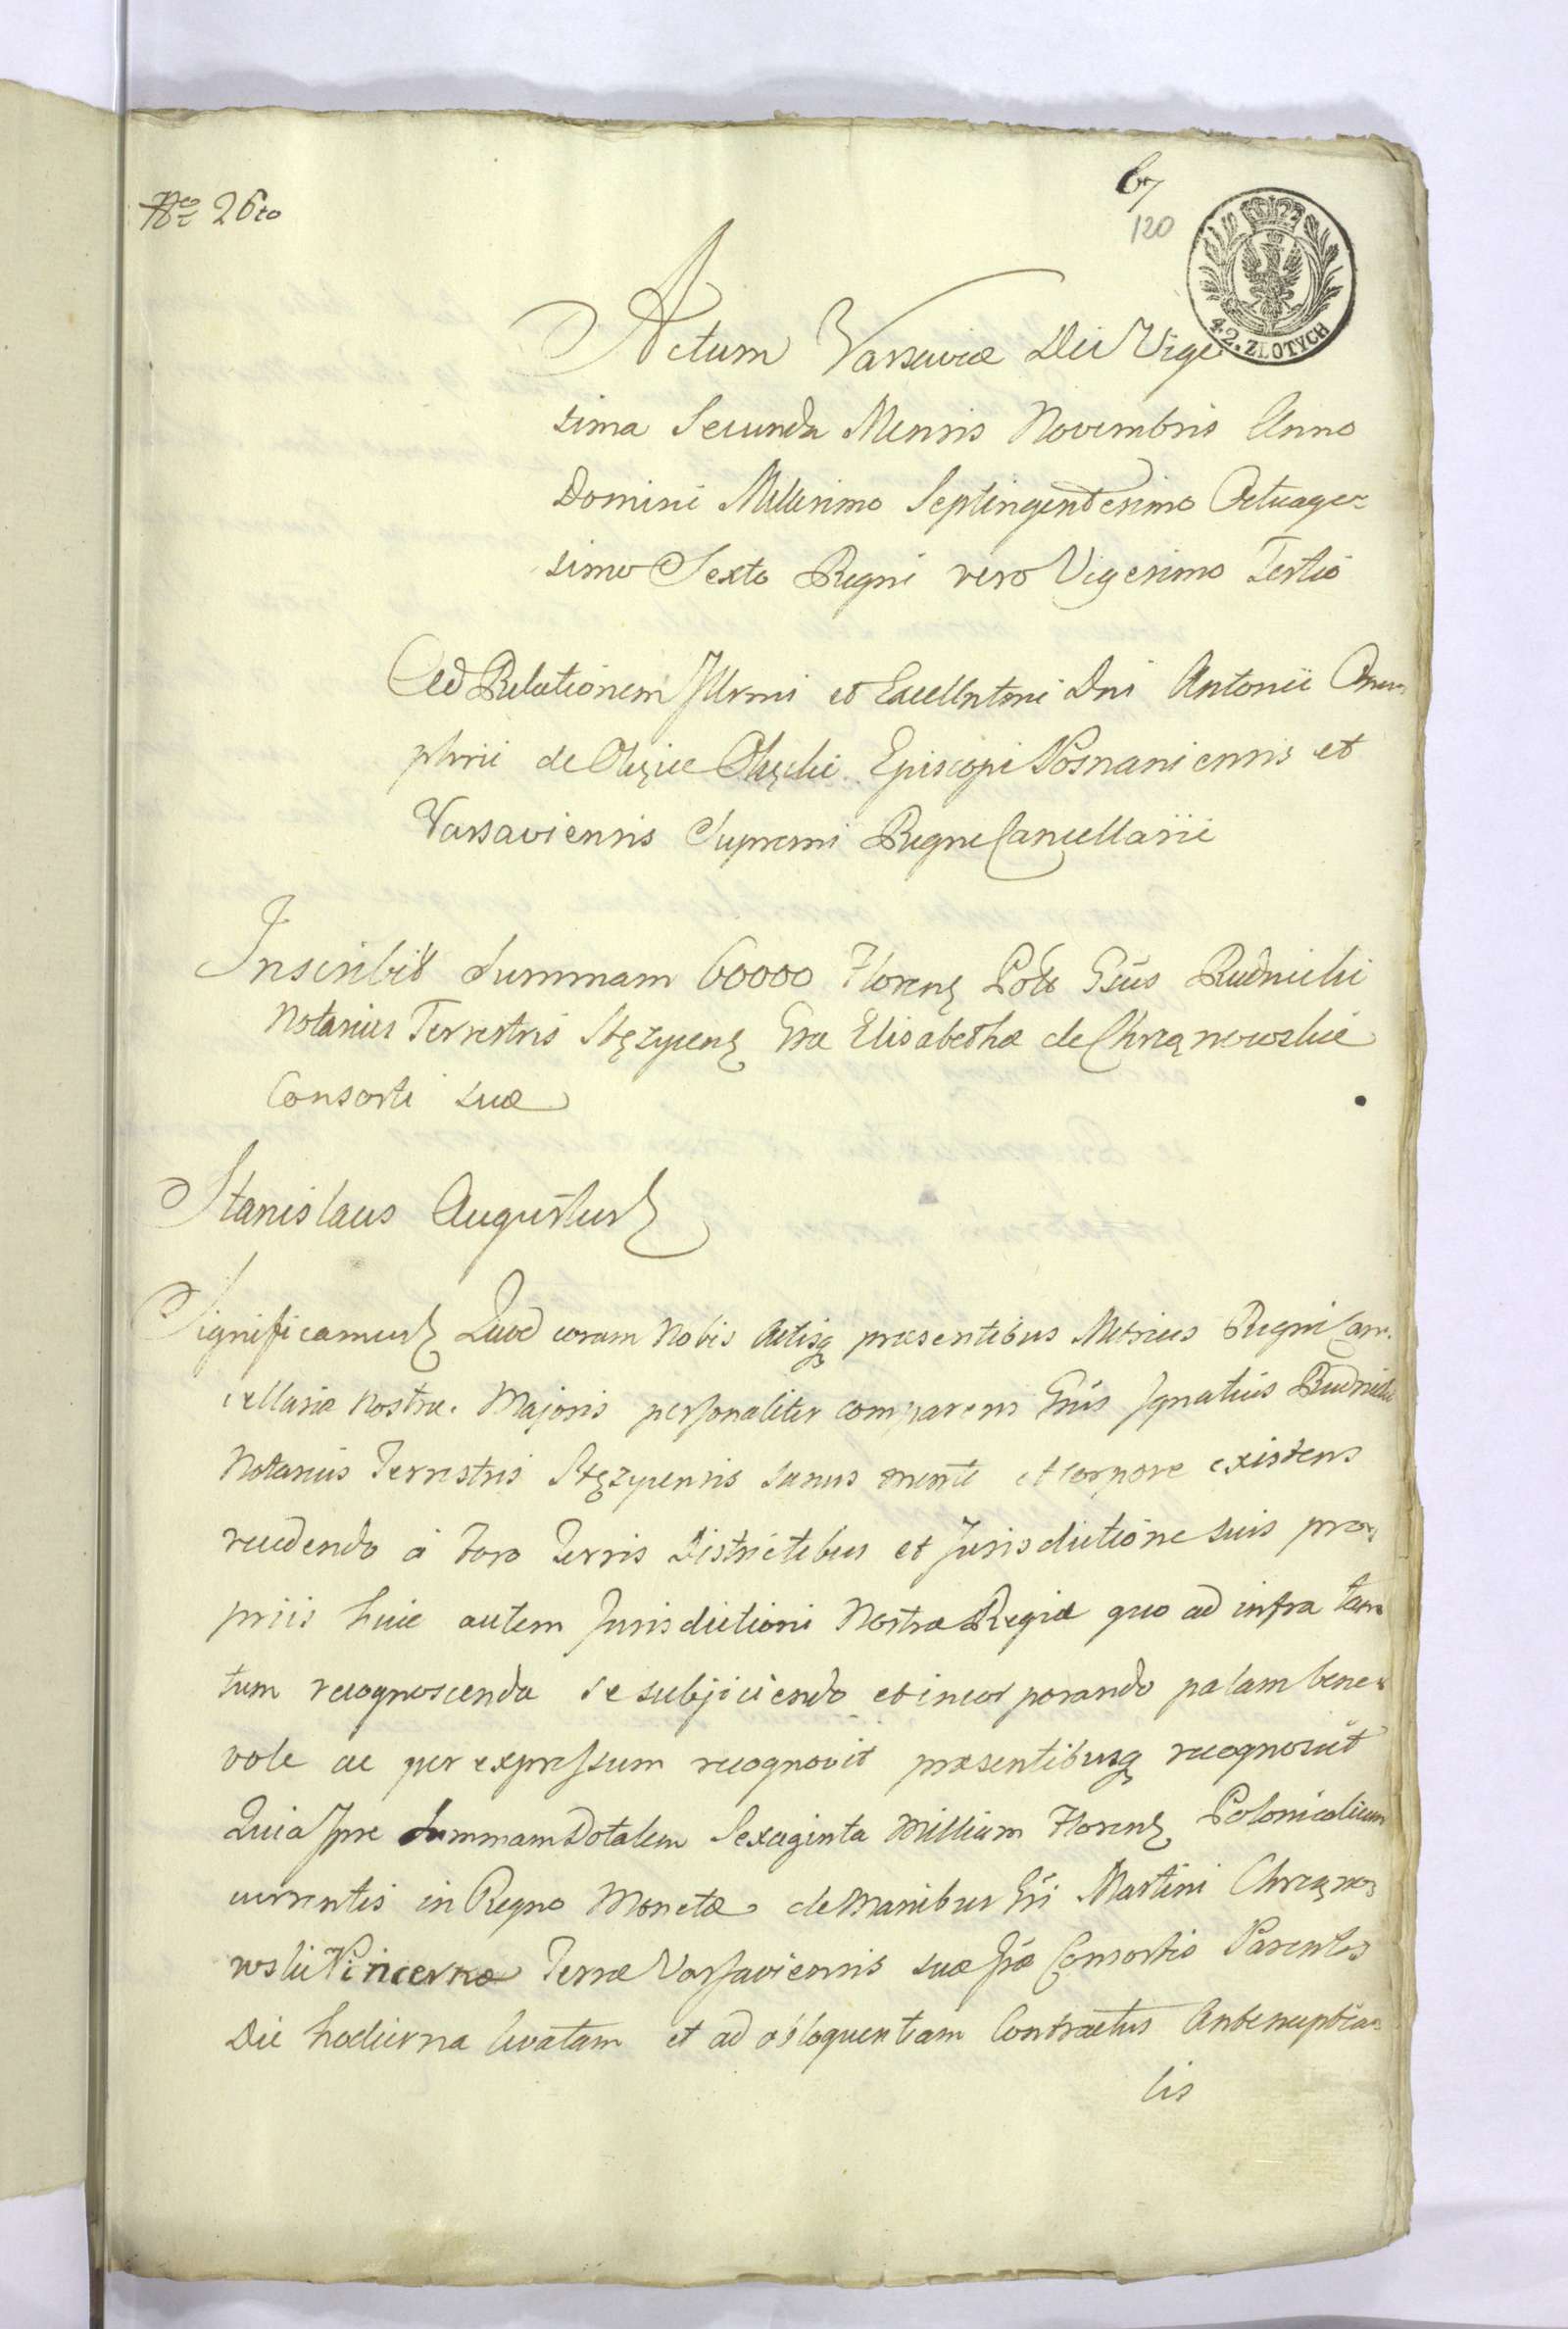 Nro 26to
67
120
4.2. ZŁOTYCH
Actum Varsaviæ Die Vige
sima Secunda Mensis Novembris Anno
Domini Millesimo Septingentesimo Octuage-
simo Sexto Regni vero Vigesimo Tertio
Ad Relationem Illrmi et Excellntmi Dni Antonii Onu-
phrii de Okęcie Okęcki Episcopi Posnaniensis et
Varsaviensis Supremi Regni Cancellarii
Inscribit Summam 60000 Floren Pol Gsus Rudnicki
Notarius Terrestris Stężycen Gsæ Elisabethæ de Chrzanowskie
Consorti suæ
Stanislaus Augustus
Significamus Quod coram Nobis Actisq præsentibus Metrices Regni Can-
cellariæ Nostræ Majoris personaliter comparens Gsus Ignatius Rudnicki
Notarius Terrestris Stęzycensis sanus mente et corpore existens
recedendo à Foro Terris Districtibus et Jurisdictione suis pro-
priis huic autem Jurisdictioni Nostræ Regiæ quo ad infra tan
tum recognoscenda se subjiciendo et incorporando palam bene-
vole ac per expressum recognovit præsentibusq recognoscit
Quia Ipse Summam Dotalem Sexaginta Millium Floren Polonicalium
currentis in Regno Monetæ de Manibus Gsi Martini Chrzano-
wski Pincernæ Terræ Varsaviensis suæ Consortis Parentis
Die hodierna levatam et ad obloquentiam Contractus Antenuptia-
lis